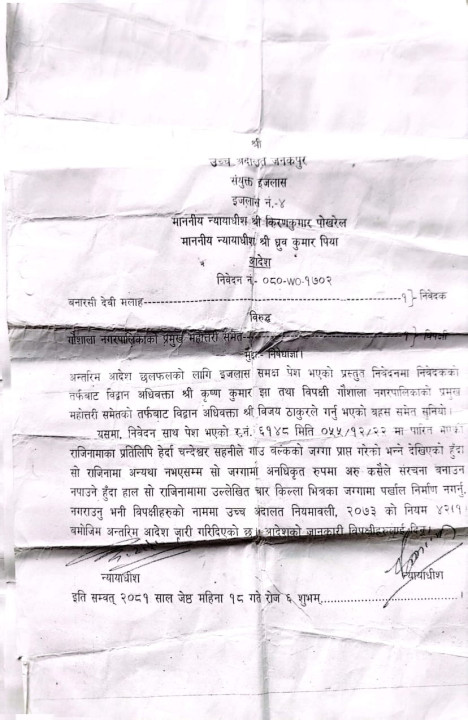 श्री
उच्च अदालत जनकपुर
संयुक्त इजलास
इजलास नं.-४
माननीय न्यायाधीश श्री किरणकुमार पोखरेल
माननीय न्यायाधीश श्री ध्रुव कुमार पिया
आदेश
निवेदन नं.- ०८०-WO-१७०२
बनारसी देवी मलाह---१]- निवेदक
विरुद्ध
गौशाला नगरपालिकाको प्रमुख महोत्तरी समेत---१]- विपक्षी
मुद्दा:- निषेधाज्ञा।
अन्तरिम आदेश छलफलको लागि इजलास समक्ष पेश भएको प्रस्तुत निवेदनमा निवेदकको
तर्फबाट विद्वान अधिवक्ता श्री कृष्ण कुमार झा तथा विपक्षी गौशाला नगरपालिकाको प्रमुख
महोत्तरी समेतको तर्फबाट विद्वान अधिवक्ता श्री विजय ठाकुरले गर्नु भएको बहस समेत सुनियो।
यसमा, निवेदन साथ पेश भएको र.नं. ६१४८ मिति ०५५/१२/२२ मा पारित भएको
राजिनामाको प्रतिलिपि हेर्दा चन्देश्वर सहनीले गाउ बल्कको जग्गा प्राप्त गरेको भन्ने देखिएको हुँदा
सो राजिनामा अन्यथा नभएसम्म सो जग्गामा अनधिकृत रुपमा अरु कसैले संरचना बनाउन
नपाउने हुँदा हाल सो राजिनामामा उल्लेखित चार किल्ला भित्रका जग्गामा पर्खाल निर्माण नगर्नु,
नगराउनु भनी विपक्षीहरुको नाममा उच्च अदालत नियमावली, २०७३ को नियम ४२(१)
बमोजिम अन्तरिम आदेश जारी गरिदिएको छ। आदेशको जानकारी विपक्षीहरुलाई दिनू।
न्यायाधीश
न्यायाधीश
इति सम्वत् २०८१ साल जेष्ठ महिना १८ गते रोज ६ शुभम्..............................।